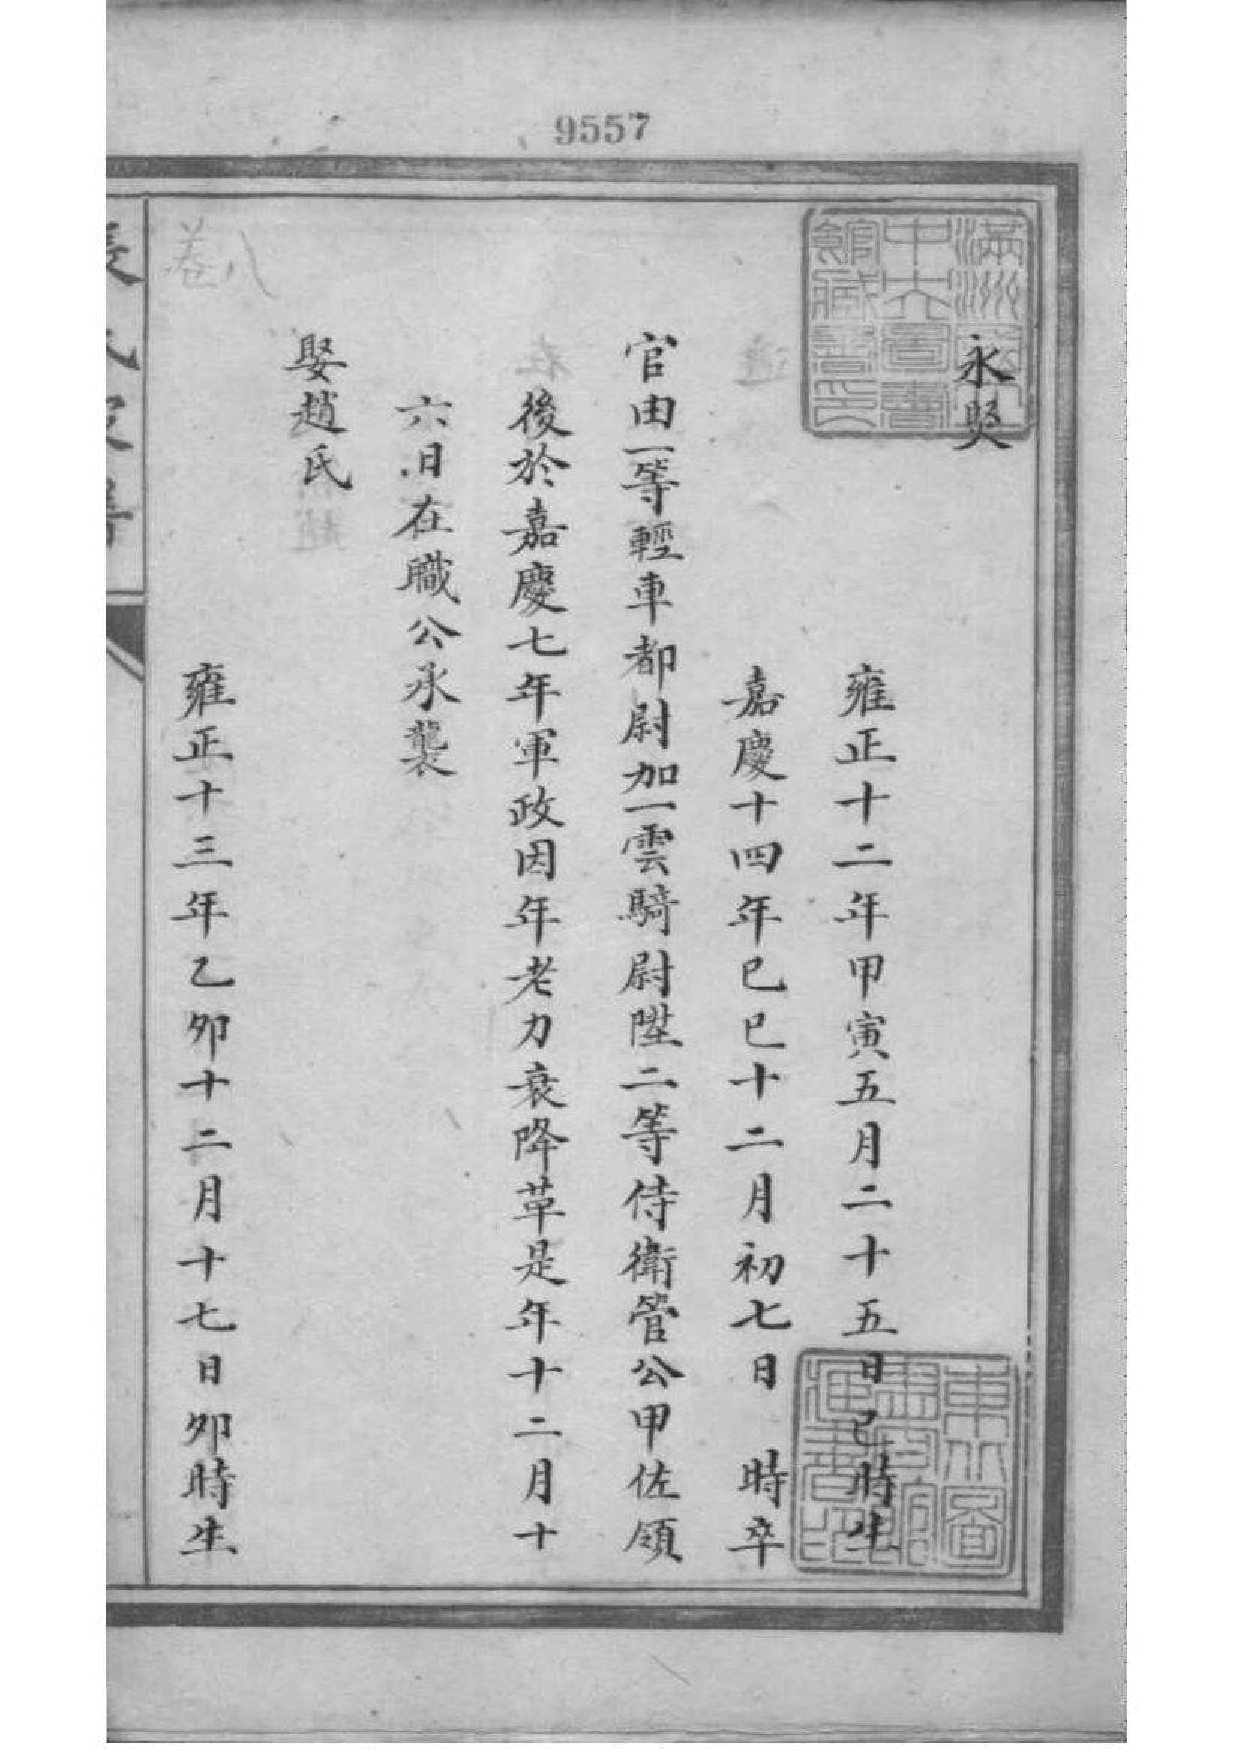 9557
滿洲國
中央圖書
館藏書印
永煚
雍正十二年甲寅五月二十五日巳時生
嘉慶十四年己巳十二月初七日 時卒
官由一等輕車都尉加一雲騎尉陞二等侍衛管公甲佐領
後於嘉慶七年軍政因年老力衰降革是年十二月十
六日在職公承襲
娶趙氏
雍正十三年乙卯十二月十七日卯時生
卷八
氏家譜
東北圖
書館所
藏書印